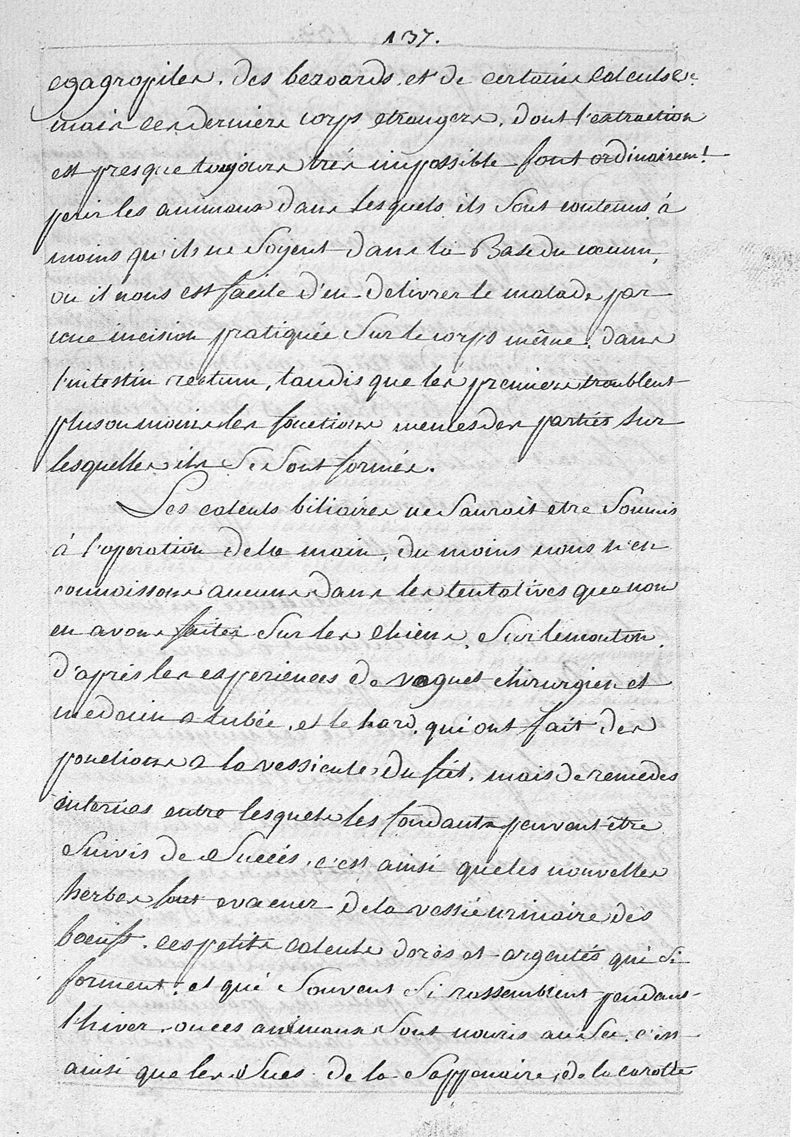 137.
egagropiles, des bezoards, et de certains calculs &c.
mais ces derniers corps etrangers, dont l'extraction
est presque toujours très impossible font ordinairem.t
perir les animaux dans lesquels ils sont contenus, à
moins qu'ils ne soyent dans la Base du cœcum,
ou il nous est facile d'en delivrer le malade par
une incision pratiquée sur le corps même, dans
l'intestin rectum, tandis que les premiers troublent
plus ou moins les fonctions memes des parties sur
lesquelles ils se sont formés.
Les calculs biliaires ne sauroit etre soumis
à l'operation de la main, du moins nous n'en
connoissons aucuns dans les tentatives que nou
en avons faites sur les chiens, sur le mouton,
d'après les experiences de chirurgien et
medecin a et le hard, qui ont fait des
ponctions a la vessicule du fiel, mais de remedes
internes entre lesquels les fondants peuvent être
suivis de succés, c'est ainsi que les nouvelles
herbes font evacuer de la vessie urinaire des
bœufs, ces petits calculs dorés et argentés qui se
forment, et qué souvent se rassemblent pendant
l'hiver, ou ces animaux sont nouris au sec, c'est
ainsi que les sucs de la sapponaire, de la carotte